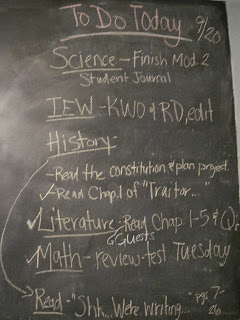 To Do Today 9/20
Science - Finish Mod. 2
Student Journal
IEW - KWO & RD, edit
History -
- Read the constitution & plan project.
✓- Read Chap. 1 of "Traitor..."
✓Literature - Read Chap. 1-5 & Qs
Guests
✓Math - review-test Tuesday
Read - "Shh... We're Writing..." pg. 7-